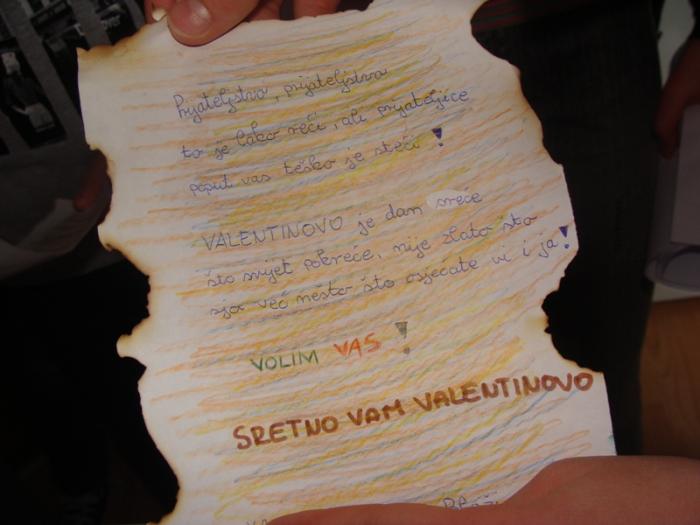 Prijateljstvo, prijateljstvo
to je lako reći, ali prijateljice
poput vas teško je steći!
VALENTINOVO je dan sreće
što svijet pokreće, nije zlato što
sja već nešto što osjećate vi i ja!
VOLIM VAS!
SRETNO VAM VALENTINOVO